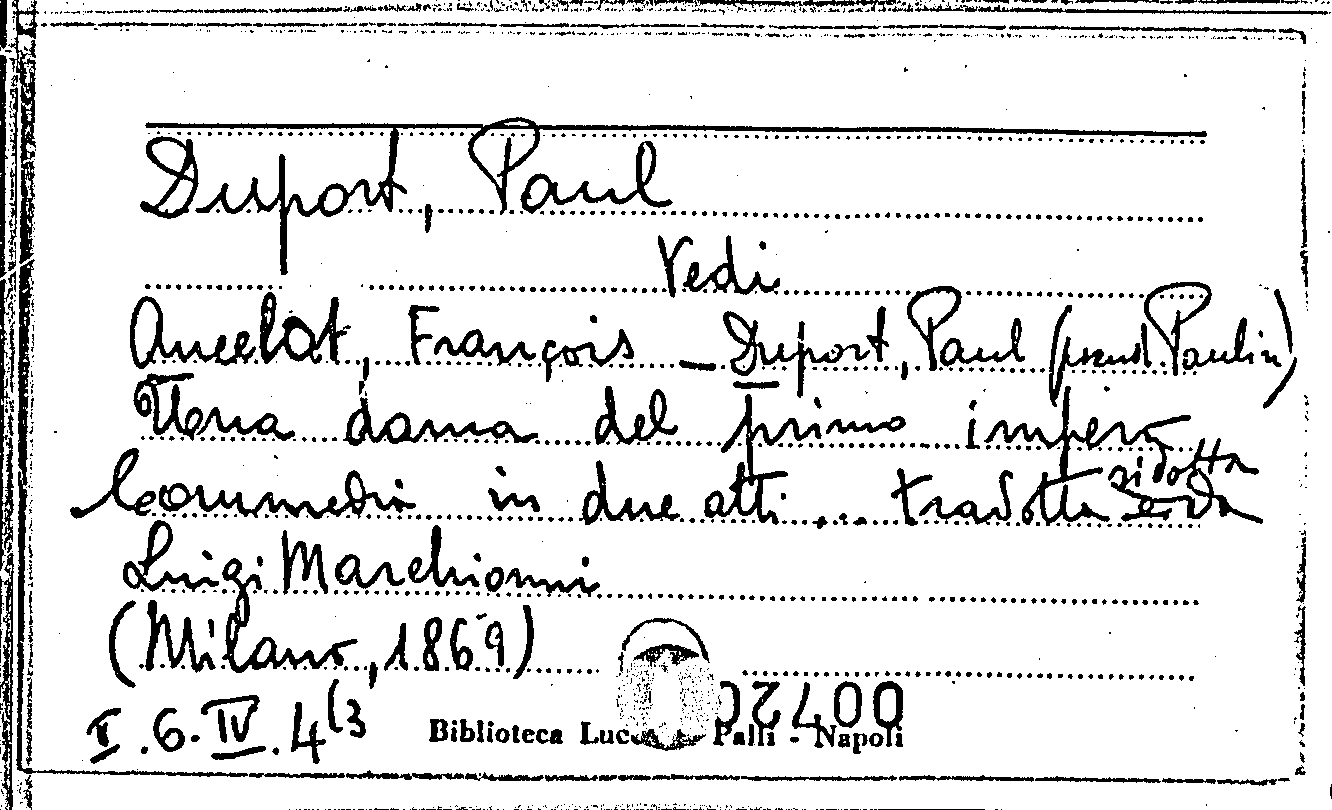 Duport, Paul
Vedi
Ancelot, François - Duport, Paul (pseud. Paulin)
Una dama del primo impero
Commedia in due atti ... tradotta ridotta
e da
Luigi Marchionni
(Milano, 1869)
I.6.IV.4(3
Biblioteca Lucchesi Palli - Napoli